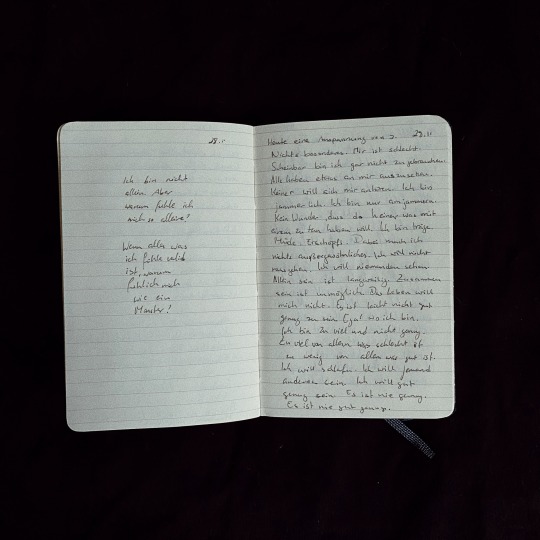 28.11
Ich bin nicht
allein Aber
warum fühle ich
mich so alleine?
Wenn alles was
ich fühle valide
ist, warum
fühl ich mich
wie ein
Monster?
29.11
Heute eine Anspannung von 7.
Nichts besonderes. Mir ist schlecht.
Scheinbar bin ich gar nicht zu gebrauchen.
Alle haben etwas an mir auszusetzen.
Keiner will sich mir antun. Ich bin
jämmerlich. Ich bin nur am jammern.
Kein Wunder, dass da keiner was mit
einem zu tun haben will. Ich bin träge.
Müde. Erschöpft. Dabei mach ich
nichts außergewöhnliches. Ich will nicht
rausgehen. Ich will niemanden sehen.
Allein sein ist langweilig. Zusammen
sein ist unmöglich. Das Leben will
mich nicht. Es ist leicht nicht gut
genug zu sein Egal wo ich bin.
Ich bin zu viel und nicht genug.
Zu viel von allem was schlecht ist
zu wenig von allem was gut ist.
Ich will schlafen. Ich will jemand
anderes sein. Ich will gut
genug sein. Es ist nie genug.
Es ist nie gut genug.